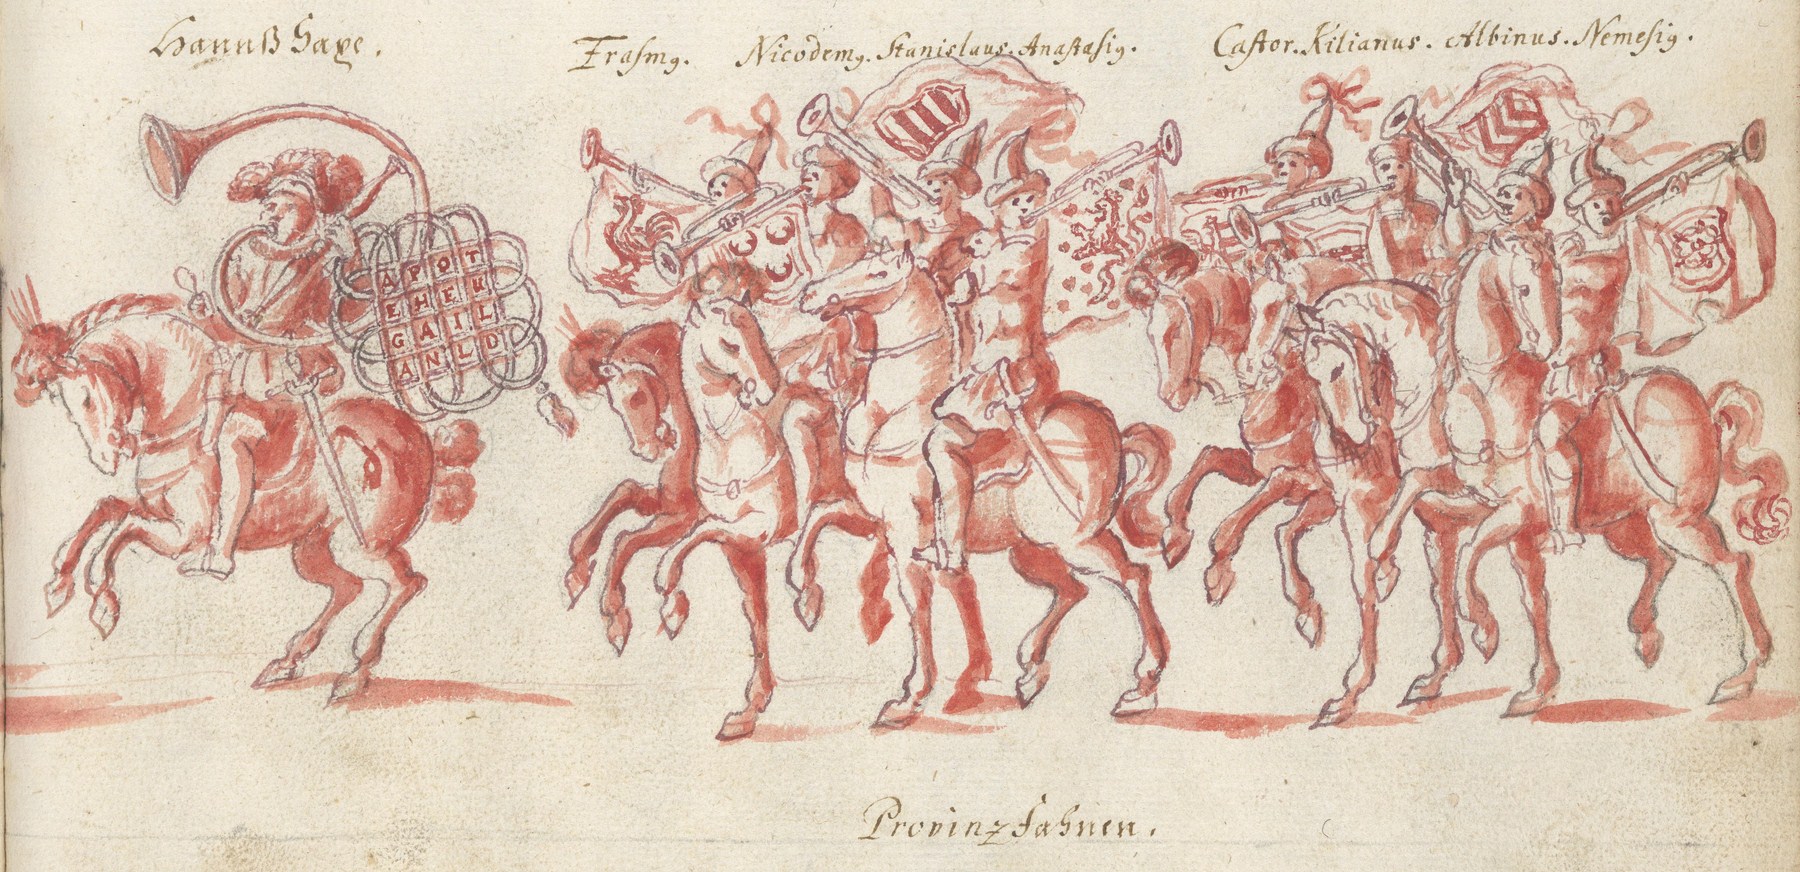 Hannß Saxe.
Erasmꝯ. Nicodemꝯ. Stanislaus. Anastasiꝯ.
Castor. Kilianus. Albinus. Nemesiꝯ.
APOT
EHEK
GAIL
ANLD
Provinz fahnen.